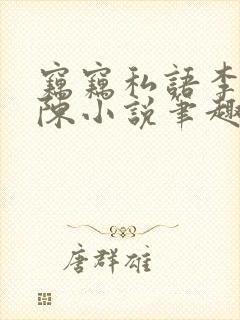 竊竊私語李
陳小說筆趣
唐群雄